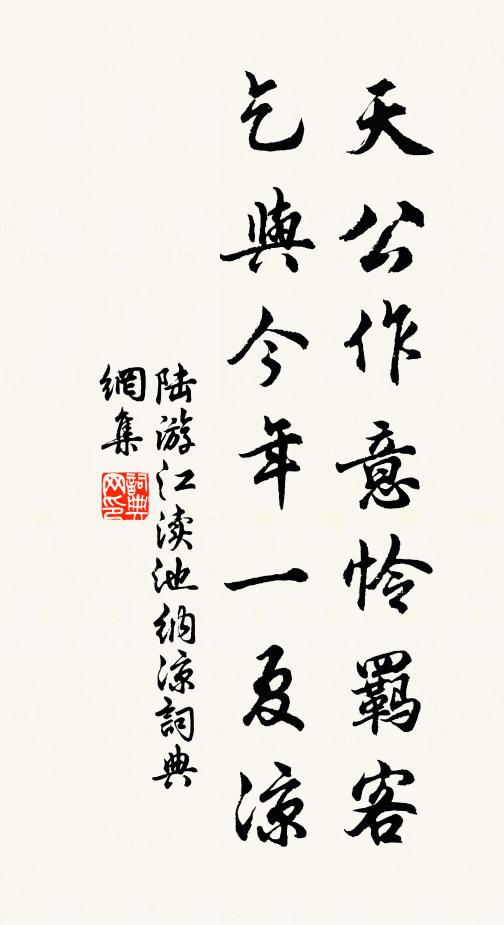 天公作意怜羁客
乞與今年一夏凉
陆游江渎池纳凉詞典
網集
詞典网印